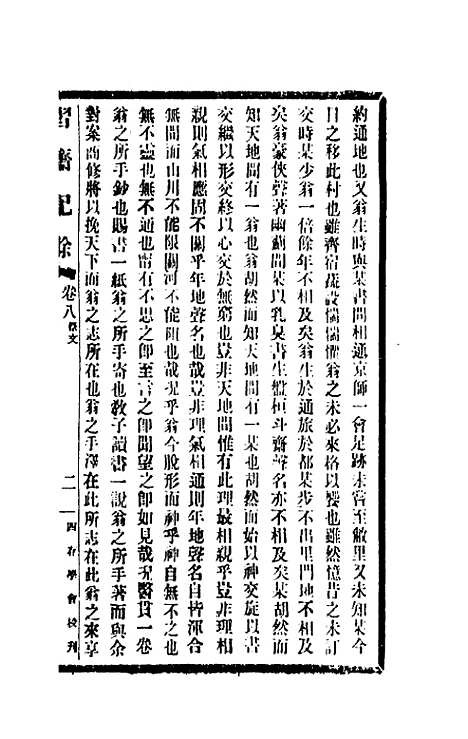 約通地也又翁生時與某書問相通京師一會足跡未嘗至敝里又未知某今
日之移此村也雖齊宿蔬設惴惴懼翁之未必來格以饗也雖然憶昔之未訂
交時某少翁一倍餘年不相及矣翁生於通旅於都某步不出里門地不相及
矣翁豪俠聲著幽薊間某以乳臭書生盤桓斗齋聲名亦不相及矣某胡然而
知天地間有一翁也翁胡然而知天地間有一某也胡然而始以神交旋以書
交繼以形交終以心交於無窮也豈非天地間惟有此理最相親乎豈非理相
親則氣相應固不關乎年地聲名也哉豈非理氣相通則年地聲名自皆渾合
無間而山川不能限關河不能阻也哉况乎翁今脫形而神乎神自無不之也
無不靈也無不通也甯有不思之卽至言之卽聞望之卽如見哉况醫貫一卷
翁之所手鈔也賜書一紙翁之所手寄也敎子讀書一說翁之所手著而與余
對案商修將以挽天下而翁之志所在也翁之手澤在此所志在此翁之來享
習齋記餘
卷八 祭文
二
四存學會校刊